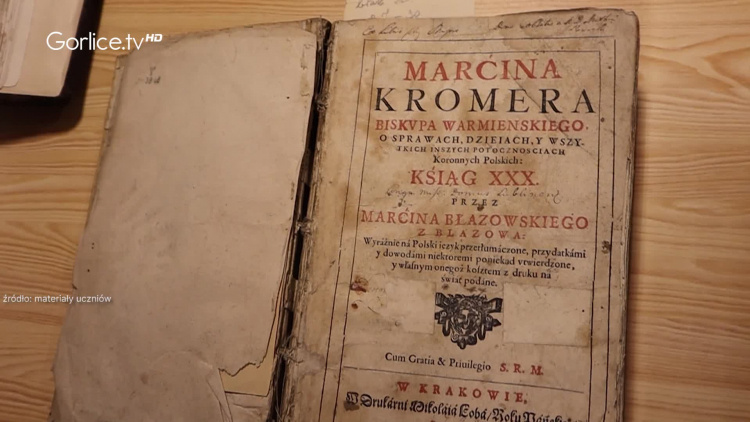 Gorlice.tv HD
MARCINA
KROMERA
BISKVPA WARMIENSKIEGO.
O SPRAWACH, DZIEIACH, Y WSZY-
TKICH INSZYCH POTOCZNOSCIACH
Koronnych Polskich:
KSIĄG XXX.
PRZEZ
MARCINA BLAZOWSKIEGO
Z BLAZOWA:
Wyráźnie ná Polski ięzyk przetłumáczone, przydatkámi
y dowodámi niektoremi poniekąd vtwierdzone,
y własnym onegoż kosztem z druku ná
świát podáne.
Cum Gratia & Priuilegio S. R. M.
W KRAKOWIE,
W Drukárni Mikoláiá Lobá, Roku Páński
źródło: materiały uczniów